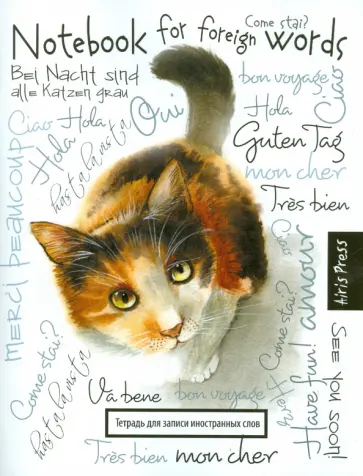 Come stai?
Notebook for foreign words
Bei Nacht sind
alle Katzen grau
bon voyage
Ciao
Ciao
Hola
Oui
Hola
Hola
hasta la vista
Guten Tag
mon cher
Très bien
MERCI beaucoup
Ciao
amour
Hiris Press
Come stai?
hasta la vista
Have fun!
SEE YOU SOON!
Va bene
bon voyage
Тетрадь для записи иностранных слов
Très bien
mon cher